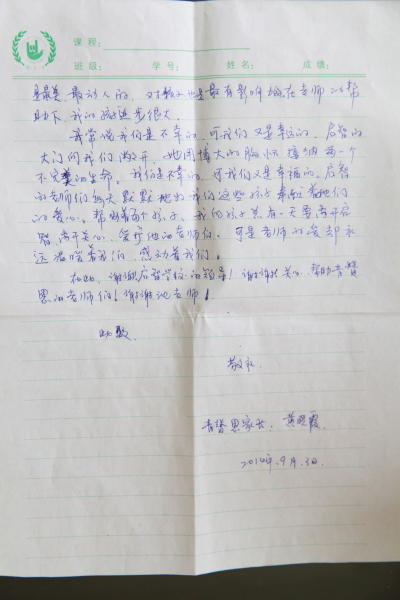 课程:
班级: 学号: 姓名: 成绩:
是最美、最动人的，对孩子也是最有影响的在老师的帮
助下，我的孩子进步很大。
我常说我们是不幸的，可我们又是幸运的，启智的
大门向我们敞开，她用博大的胸怀接纳着一个
不完美的生命。我们是不幸的，可我们又是幸福的。启智
的老师们每天默默地为我们这些孩子奉献着她们
的爱心。帮助着每个孩子。我的孩子总有一天要离开启
智，离开关心、爱护他的老师们。可是老师的爱却永
远温暖着我们，感动着我们。
在此，谢谢启智学校的领导！谢谢关心、帮助
思的老师们！谢谢老师！
此致
敬礼
思家长：黄晓霞
2014年.9月.3日